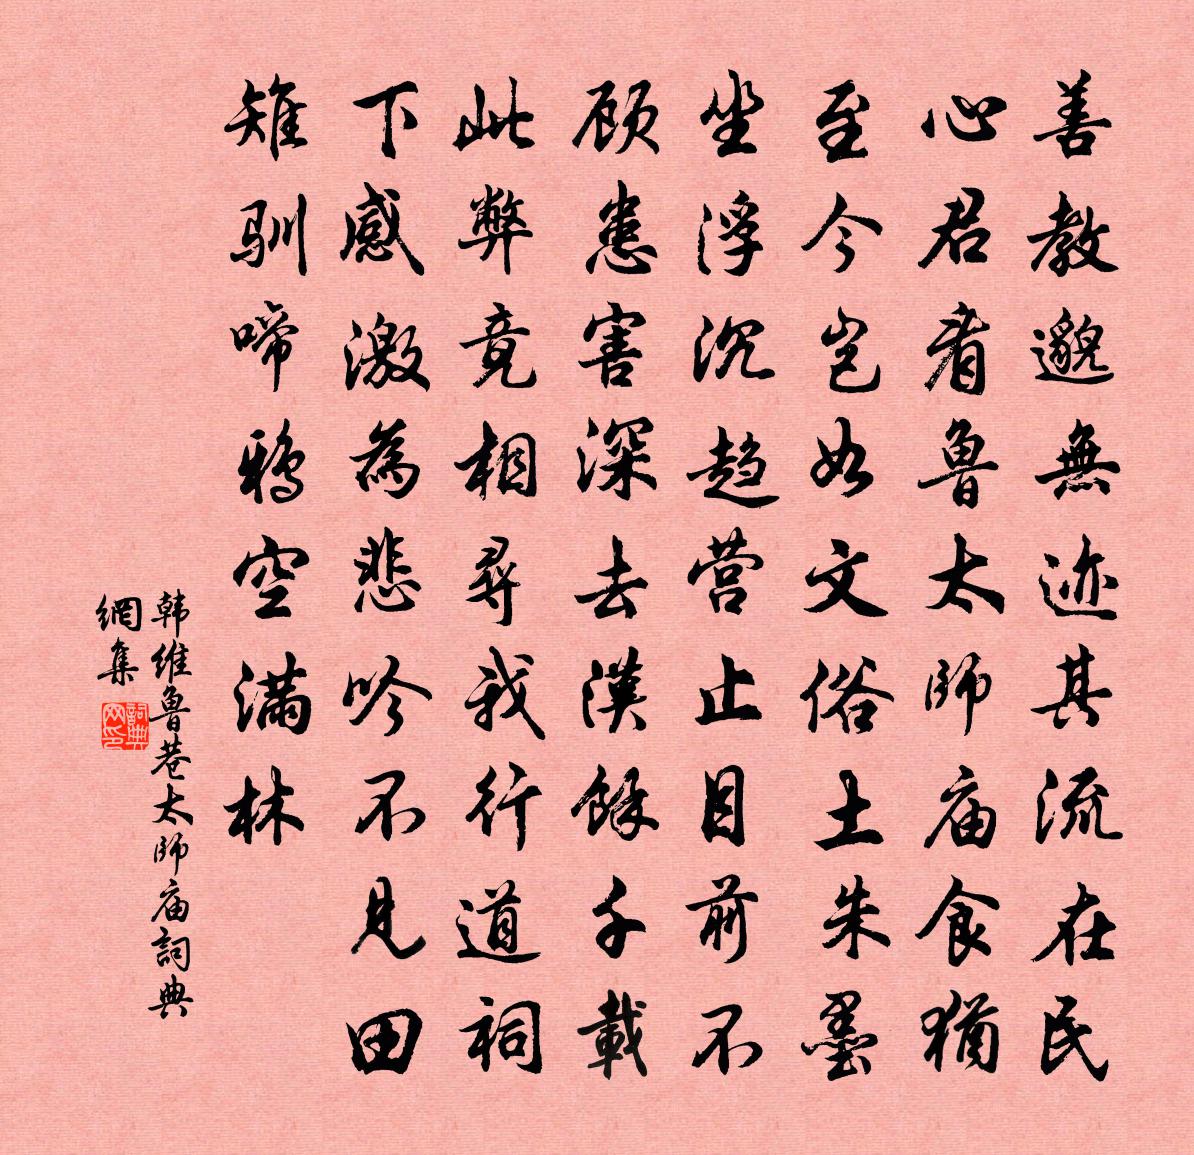 善教邈無迹其流在民
心君看魯太師庙食猶
至今岂如文俗土朱墨
坐浮沉趋营止目前不
顾患害深去漢餘千載
此弊竟相尋我行道祠
下感激為悲吟不見田
雉馴啼鸦空满林
韩维魯巷太師庙詞典
網集
詞典网印